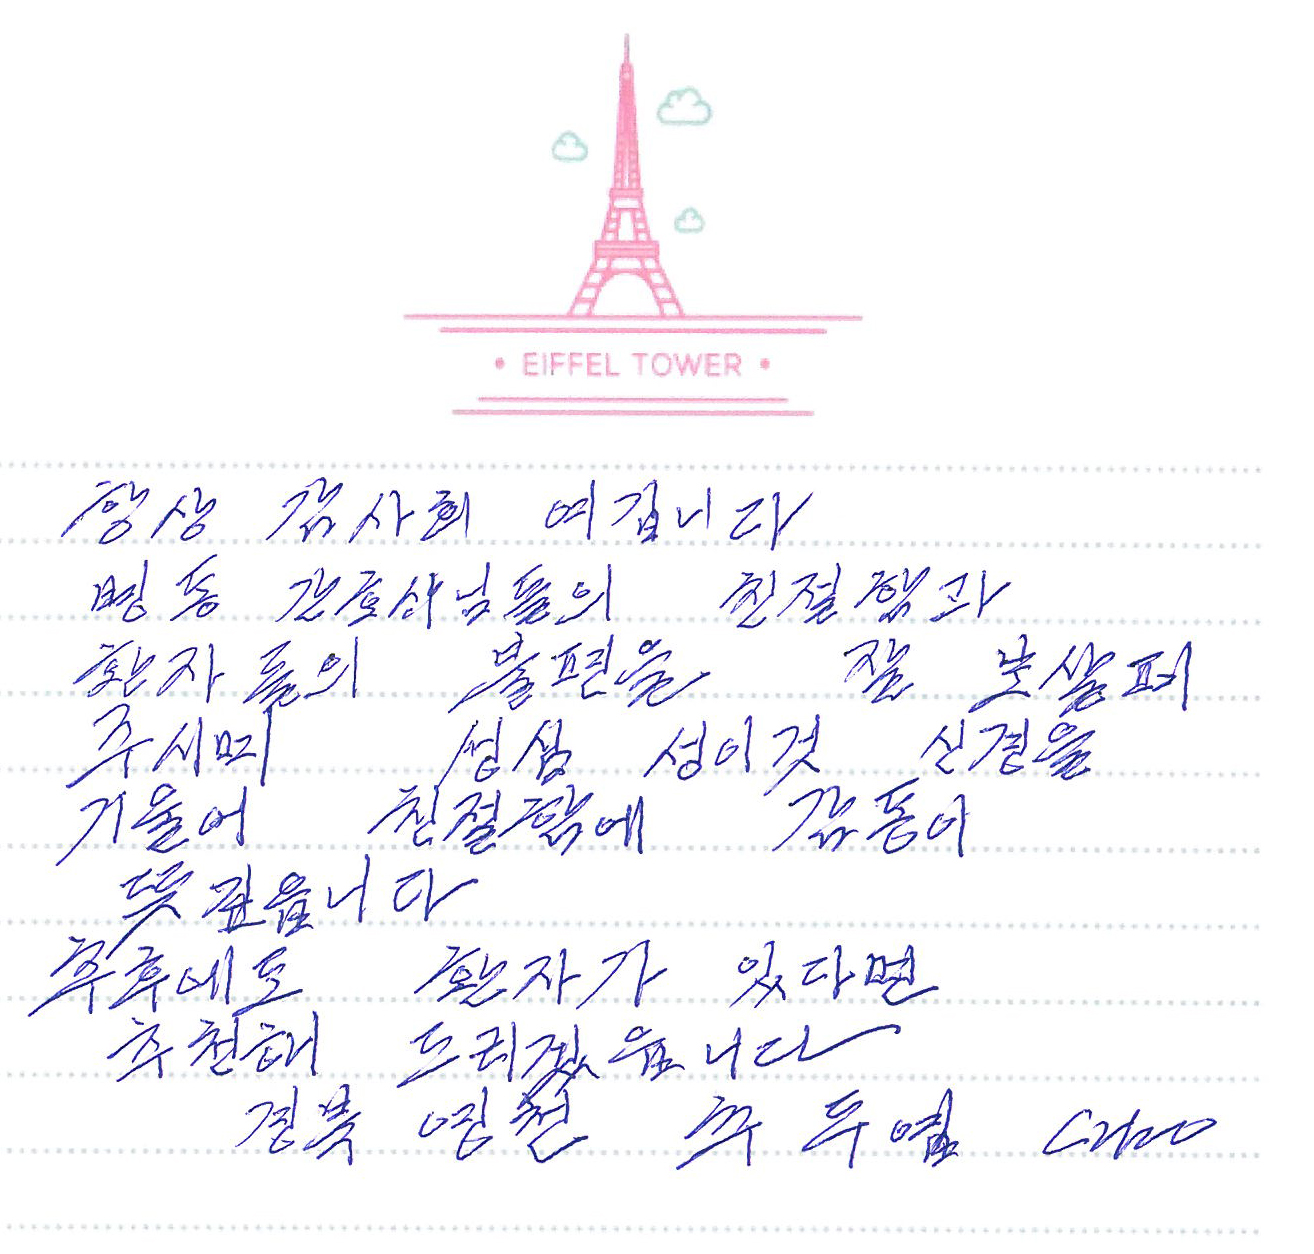 EIFFEL TOWER
항상 감사히 여깁니다
병동 간호사님들의 친절함과
환자들의 불편을 잘 보살펴
주시며 성심 성이것 신경을
기울어 친절함에 감동어
뜻 깊읍니다
추후에도 환자가 있다면
추천해 드리겠읍니다
경북 영천